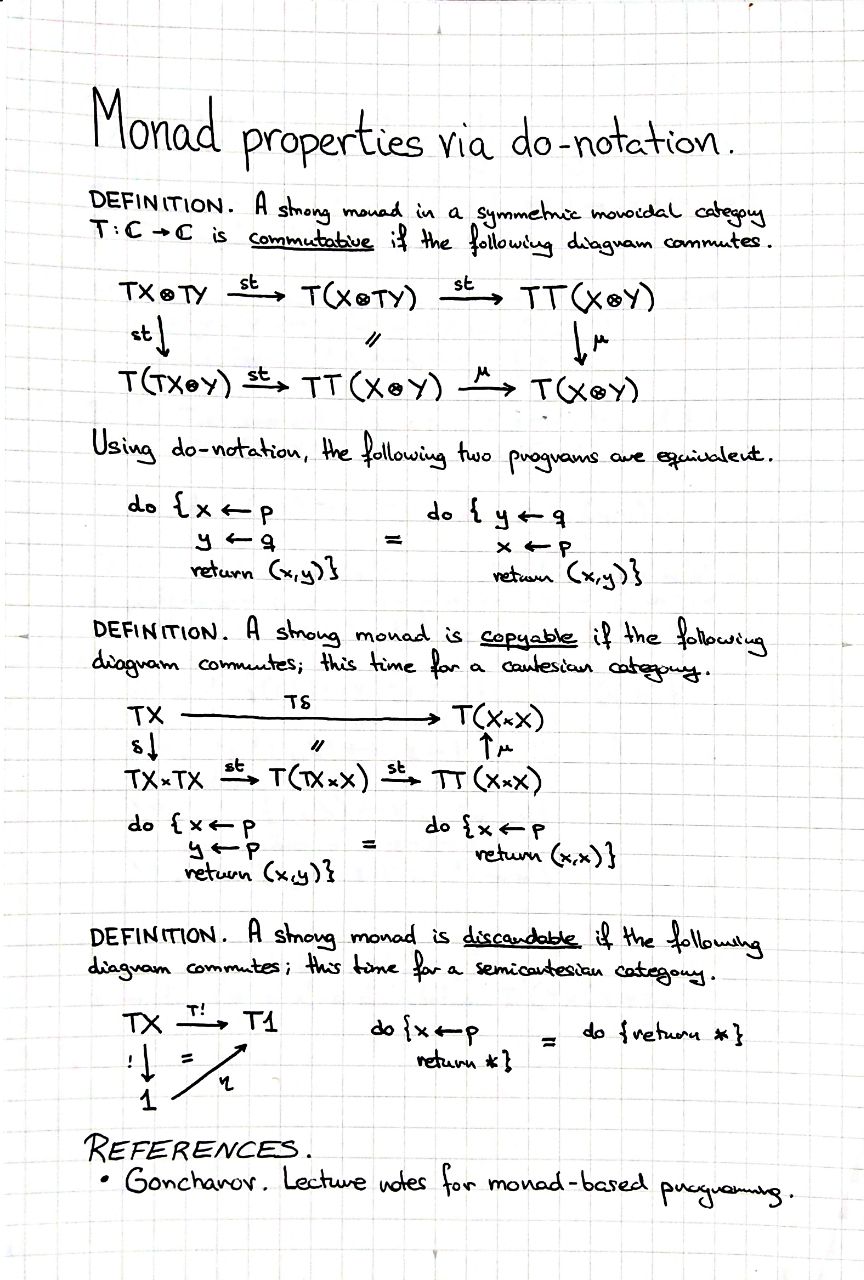 Monad properties via do-notation.
DEFINITION. A strong monad in a symmetric monoidal category
T : ℂ → ℂ is commutative if the following diagram commutes.
TX⊗TY —st→ T(X⊗TY) —st→ TT(X⊗Y)
st↓ // ↓μ
T(TX⊗Y) —st→ TT(X⊗Y) —μ→ T(X⊗Y)
Using do-notation, the following two programs are equivalent.
do { x ← p do { y ← q
y ← q = x ← p
return (x,y)} return (x,y)}
DEFINITION. A strong monad is copyable if the following
diagram commutes; this time for a cartesian category.
TX —Tδ→ T(X×X)
δ↓ // ↑μ
TX×TX —st→ T(TX×X) —st→ TT(X×X)
do { x ← p do { x ← p
y ← p = return (x,x)}
return (x,y)}
DEFINITION. A strong monad is discardable if the following
diagram commutes; this time for a semicartesian category.
TX —T!→ T1 do { x ← p = do {return *}
! ↓ = ↗ η return *}
1
REFERENCES.
• Goncharov. Lecture notes for monad-based programming.